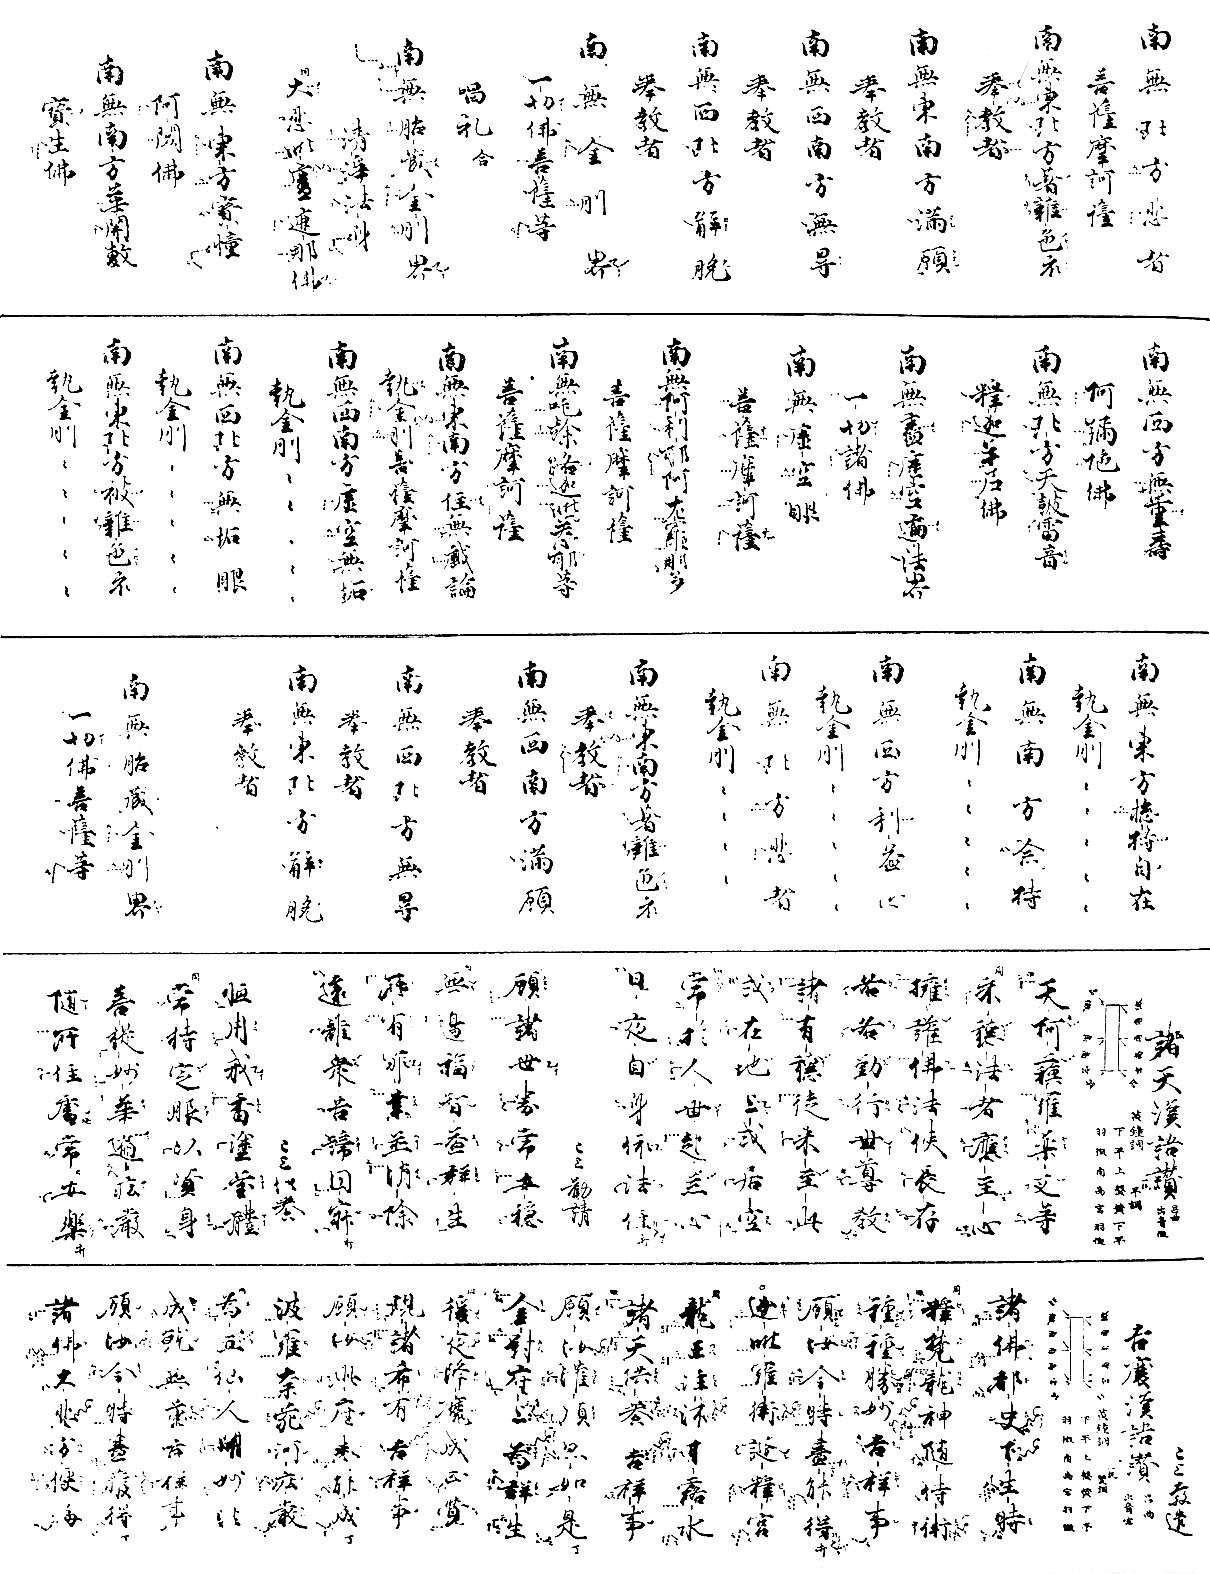 南無北方悲者
菩薩摩訶薩
南無東北方着雜色衣
奉教者
南無東南方滿願
奉教者
南無西南方無㝵
奉教者
南無西北方解脱
奉教者
南無金剛界
一切佛菩薩等
唱礼 合
南無胎藏金剛界
清淨法身
大悲毗盧遮那佛
南無東方寶幢
阿閦佛
南無南方華開敷
寶生佛
南無西方無量壽
阿彌陀佛
南無北方天鼓雷音
釋迦牟尼佛
南無盡虛空遍法界
一切諸佛
南無虛空眼
菩薩摩訶薩
菩薩摩訶薩
菩薩摩訶薩
南無東南方住無戲論
執金剛菩薩摩訶薩
南無西南方虛空無垢
執金剛〻〻〻〻〻
南無西北方無垢眼
執金剛〻〻〻〻〻
南無東北方被雜色衣
執金剛〻〻〻〻〻
南無東方摠持自在
執金剛〻〻〻〻〻
南無南方奈持
執金剛〻〻〻〻〻
南無西方利益心
執金剛〻〻〻〻〻
南無北方悲者
執金剛〻〻〻〻〻
南無東南方着雜色衣
奉教者
南無西南方滿願
奉教者
南無西北方無㝵
奉教者
南無東北方解脱
奉教者
南無胎藏金剛界
一切佛菩薩等
諸天漢語讚
天阿蘓羅藥叉等
來聽法者應至心
擁護佛法使長存
各各勤行世尊教
諸有聽徒來至此
或在地上或居空
常於人世起慈心
日夜自身依法住
勸請
願諸世界常安穩
無邊福智益群生
所有罪業並消除
遠離衆苦歸圓寂
供養
恒用戒香塗瑩體
常持定服以資身
菩提妙華遍莊嚴
隨所住處常安樂
吉慶漢語讚
諸佛都史下生時
釋梵龍神隨侍衛
種種勝妙吉祥事
願汝今時盡能得
迦毗羅衛誕釋宮
龍王澍沐甘露水
諸天供養吉祥事
願汝灌頂亦如是
金剛座上為群生
後夜降魔成正覺
現諸希有吉祥事
願汝此座悉能成
波羅奈苑所莊嚴
為五仙人開妙法
成就無量吉祥事
願汝今時盡獲得
諸佛大悲方便海